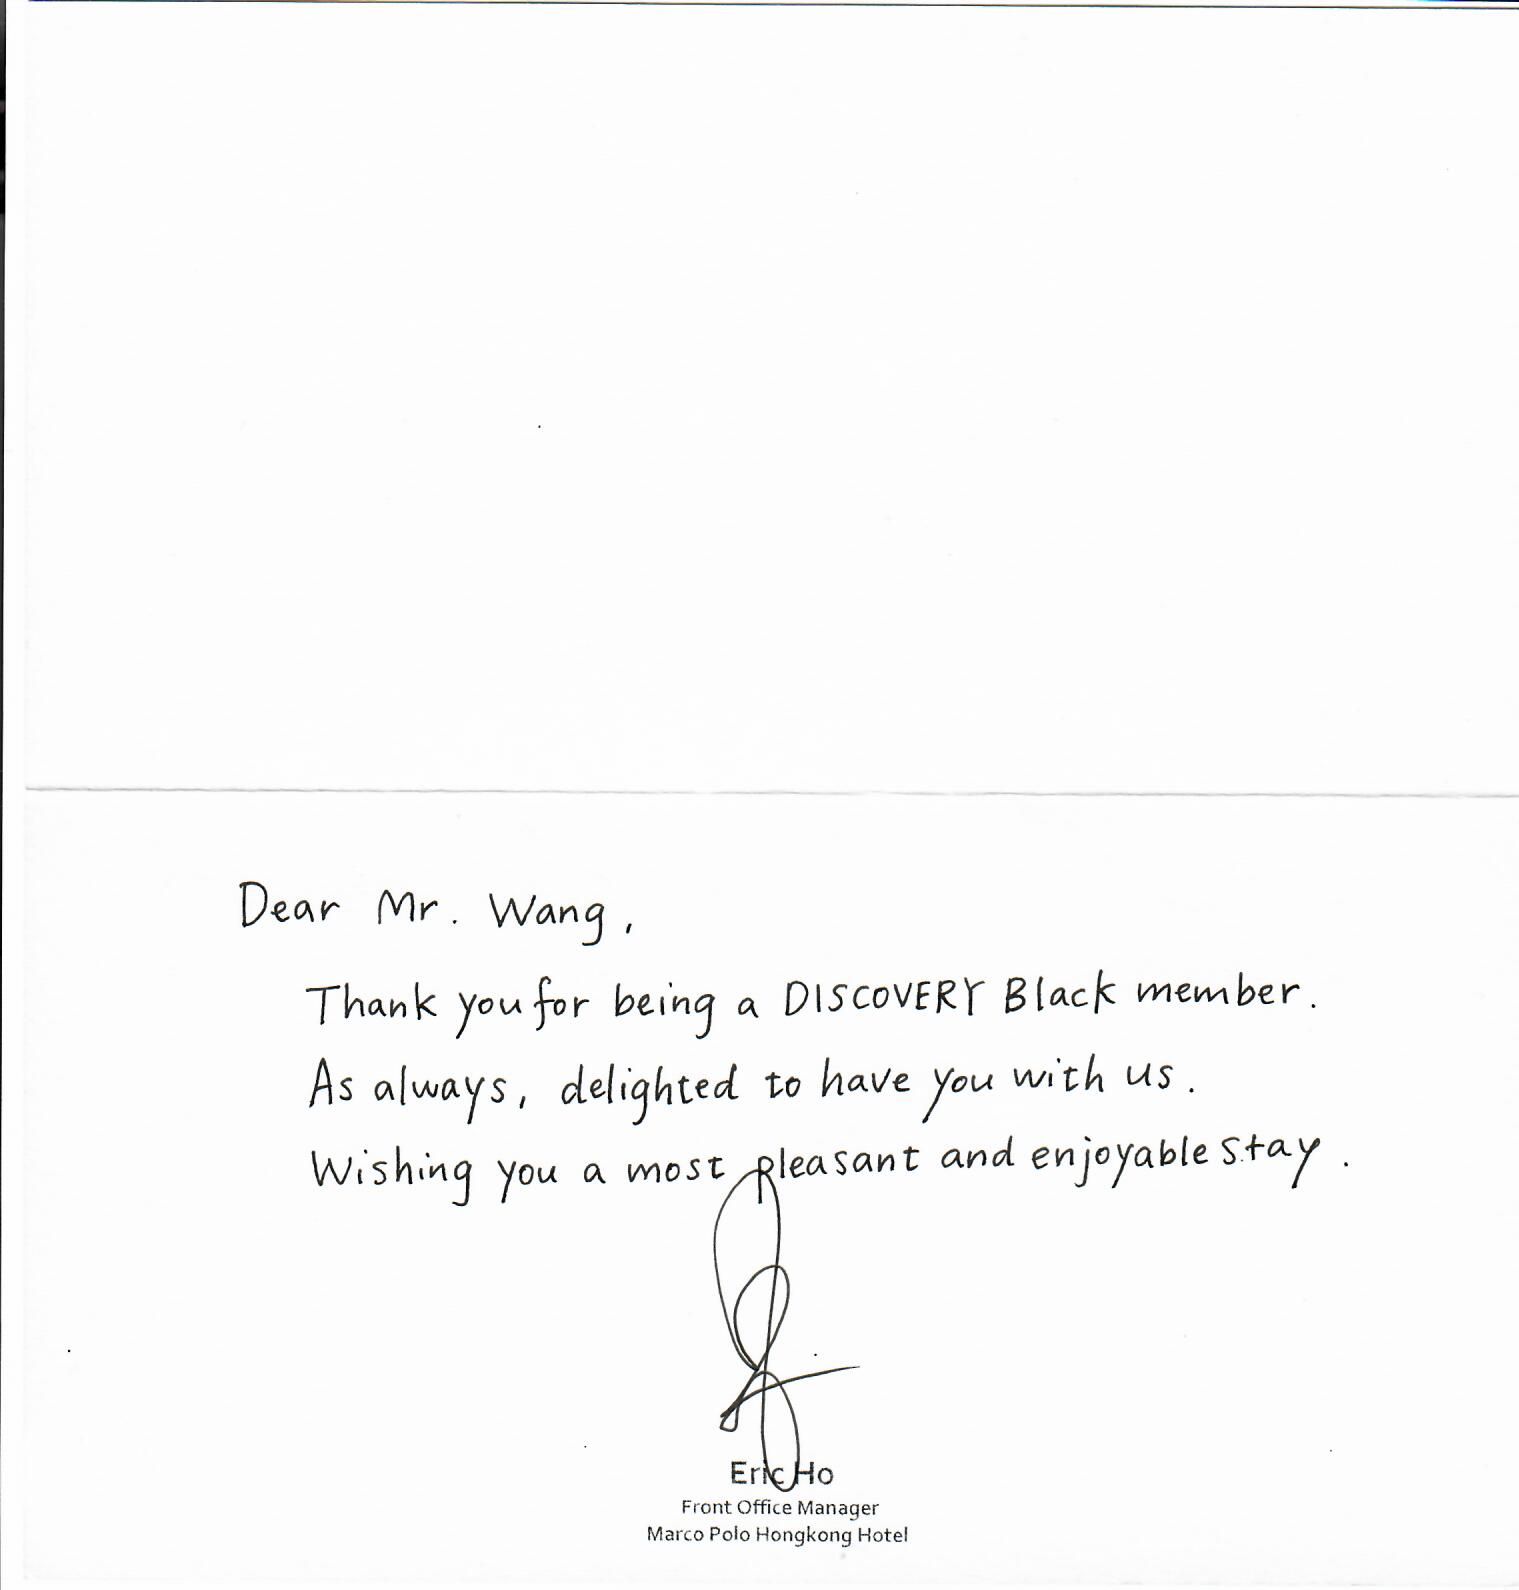 Dear Mr. Wang,
Thank you for being a DISCOVERY Black member.
As always, delighted to have you with us.
Wishing you a most pleasant and enjoyable stay.
Eric Ho
Front Office Manager
Marco Polo Hongkong Hotel